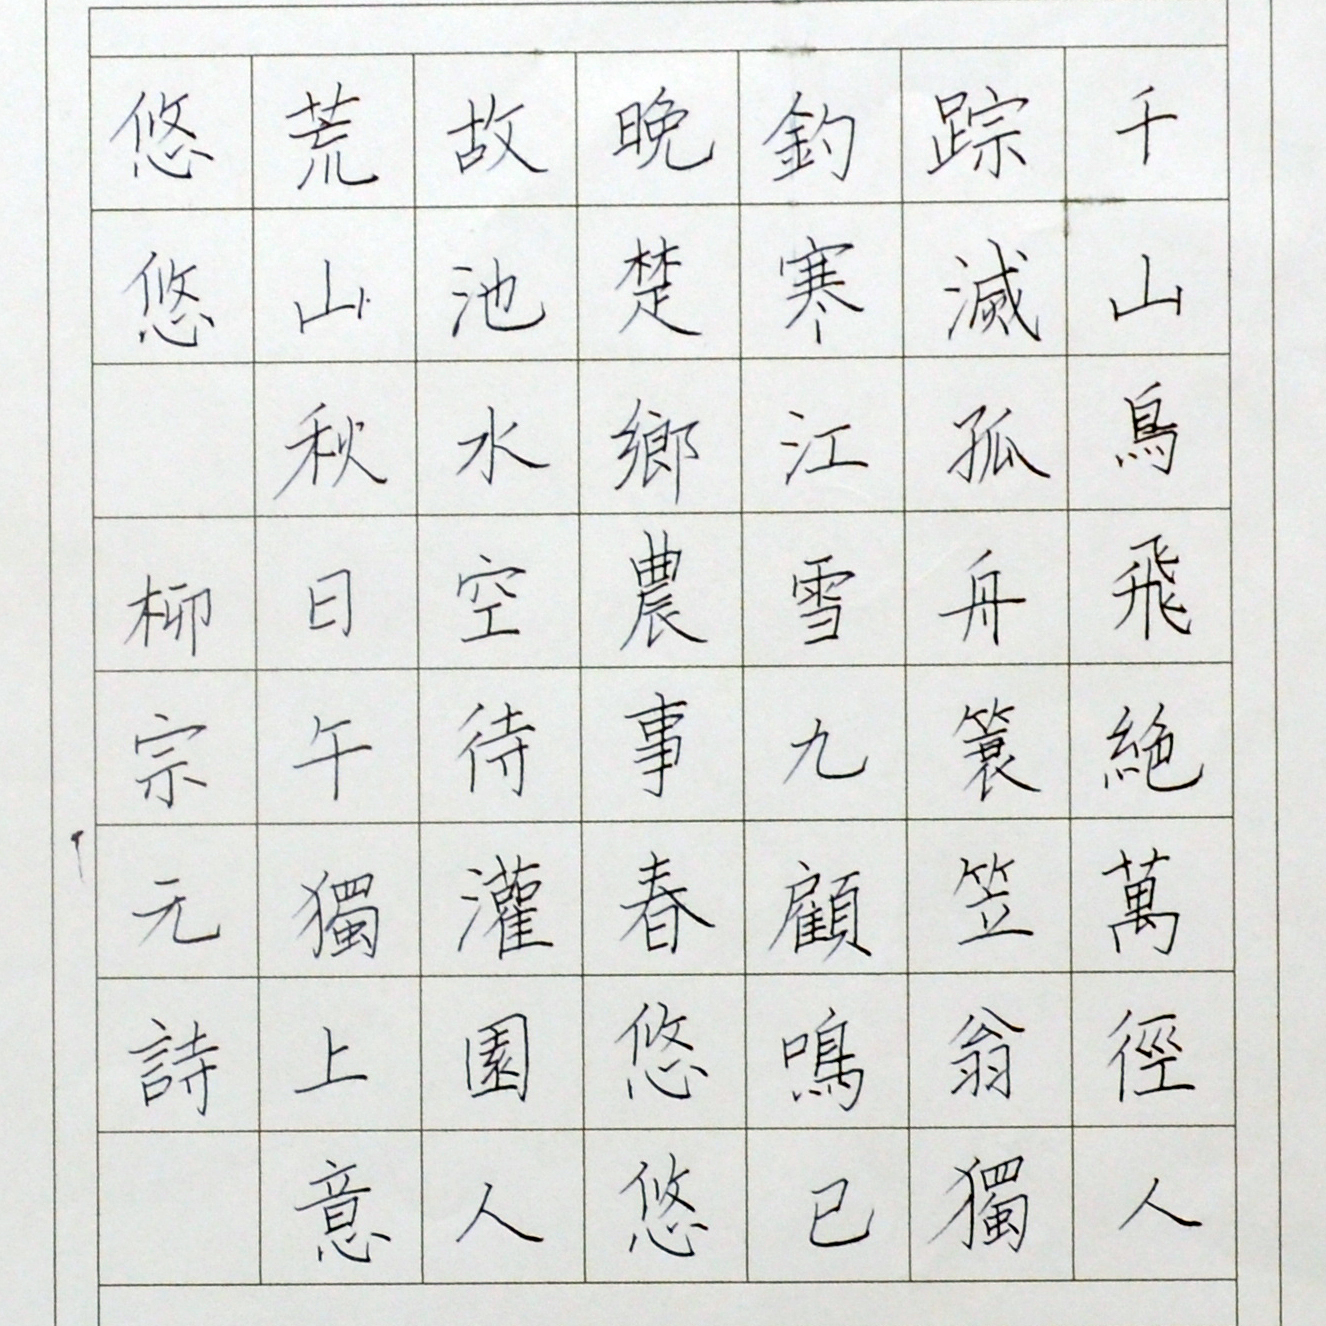 千山鳥飛絶萬徑人
踪滅孤舟簑笠翁獨
釣寒江雪九顧鳴已
晚楚鄉農事春悠悠
故池水空待灌園人
荒山秋日午獨上意
悠悠 柳宗元詩